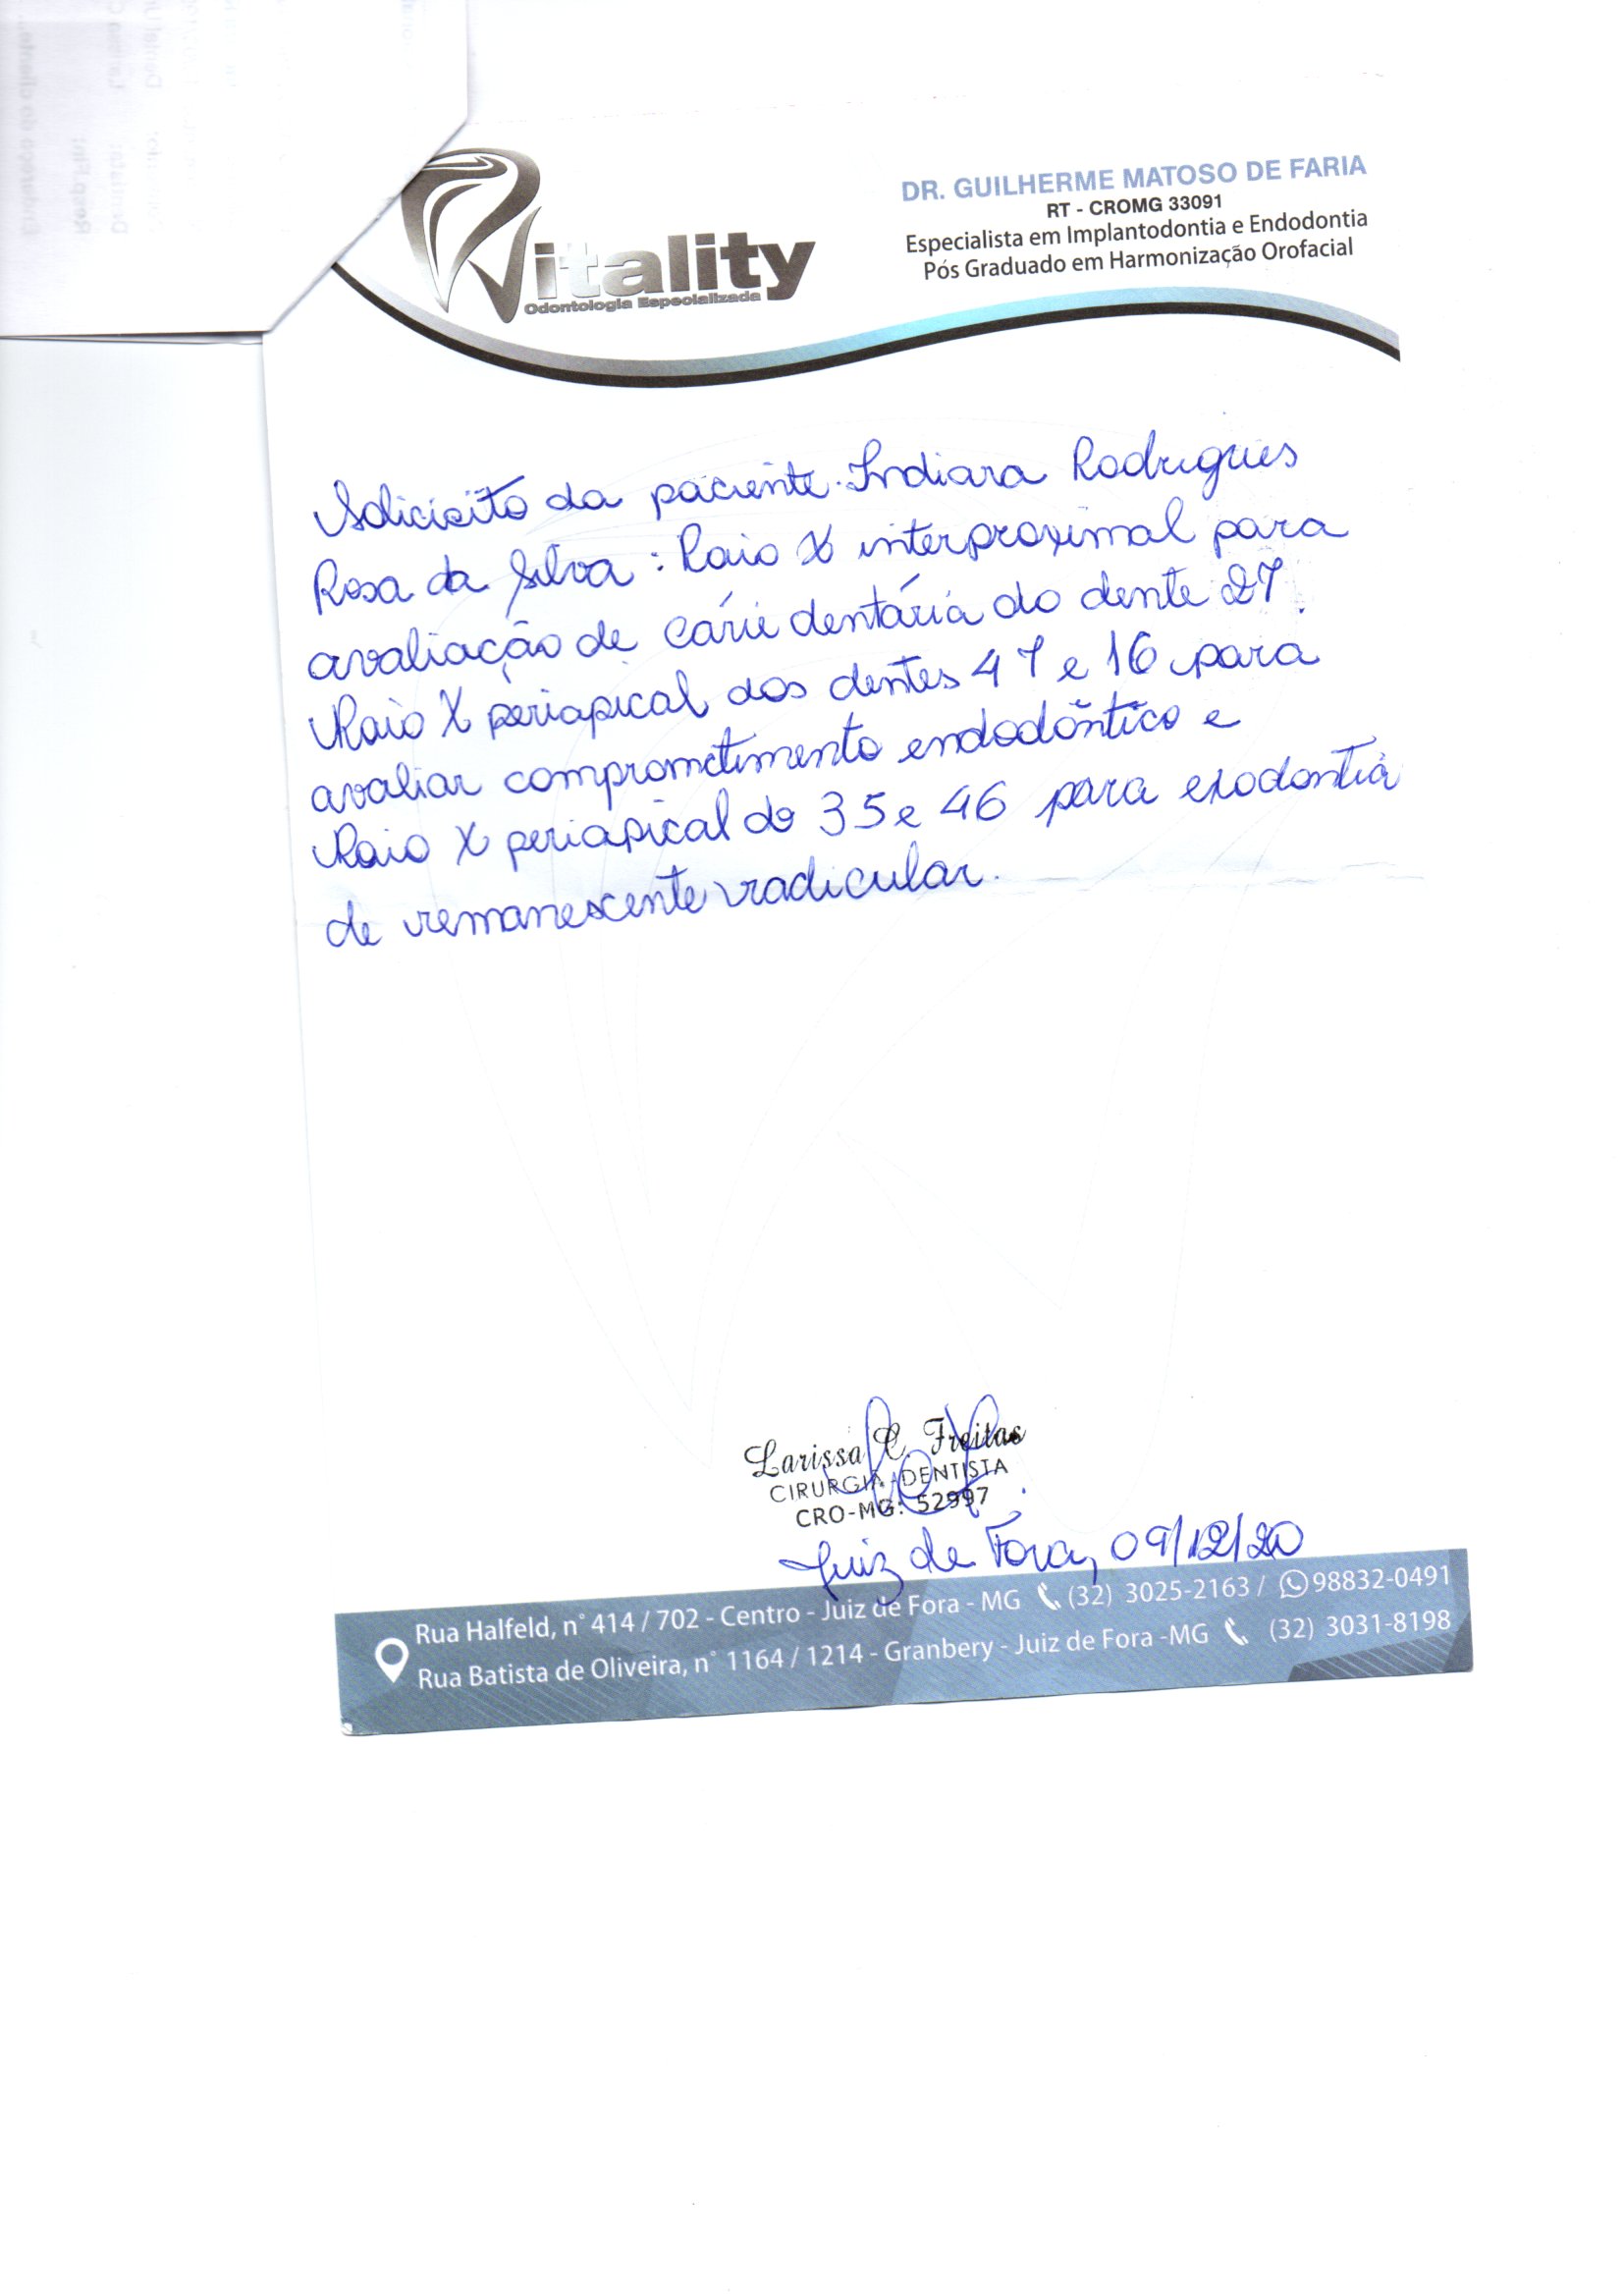 Vitality
Odontologia Especializada
DR. GUILHERME MATOSO DE FARIA
RT - CROMG 33091
Especialista em Implantodontia e Endodontia
Pós Graduado em Harmonização Orofacial
Solicisito da paciente Indiara Rodrigues
Rosa da Silva : Raio X interproximal para
avaliação de cárie dentária do dente 27.
Raio X periapical dos dentes 47 e 16 para
avaliar comprometimento endodôntico e
Raio X periapical do 35 e 46 para exodontia
de remanescente radicular.
Larissa C. Freitas
CIRURGIÃ-DENTISTA
CRO-MG: 52997
Juiz de Fora, 09/12/20
Rua Halfeld, n° 414 / 702 - Centro - Juiz de Fora - MG (32) 3025-2163 / 98832-0491
Rua Batista de Oliveira, n° 1164 / 1214 - Granbery - Juiz de Fora -MG (32) 3031-8198